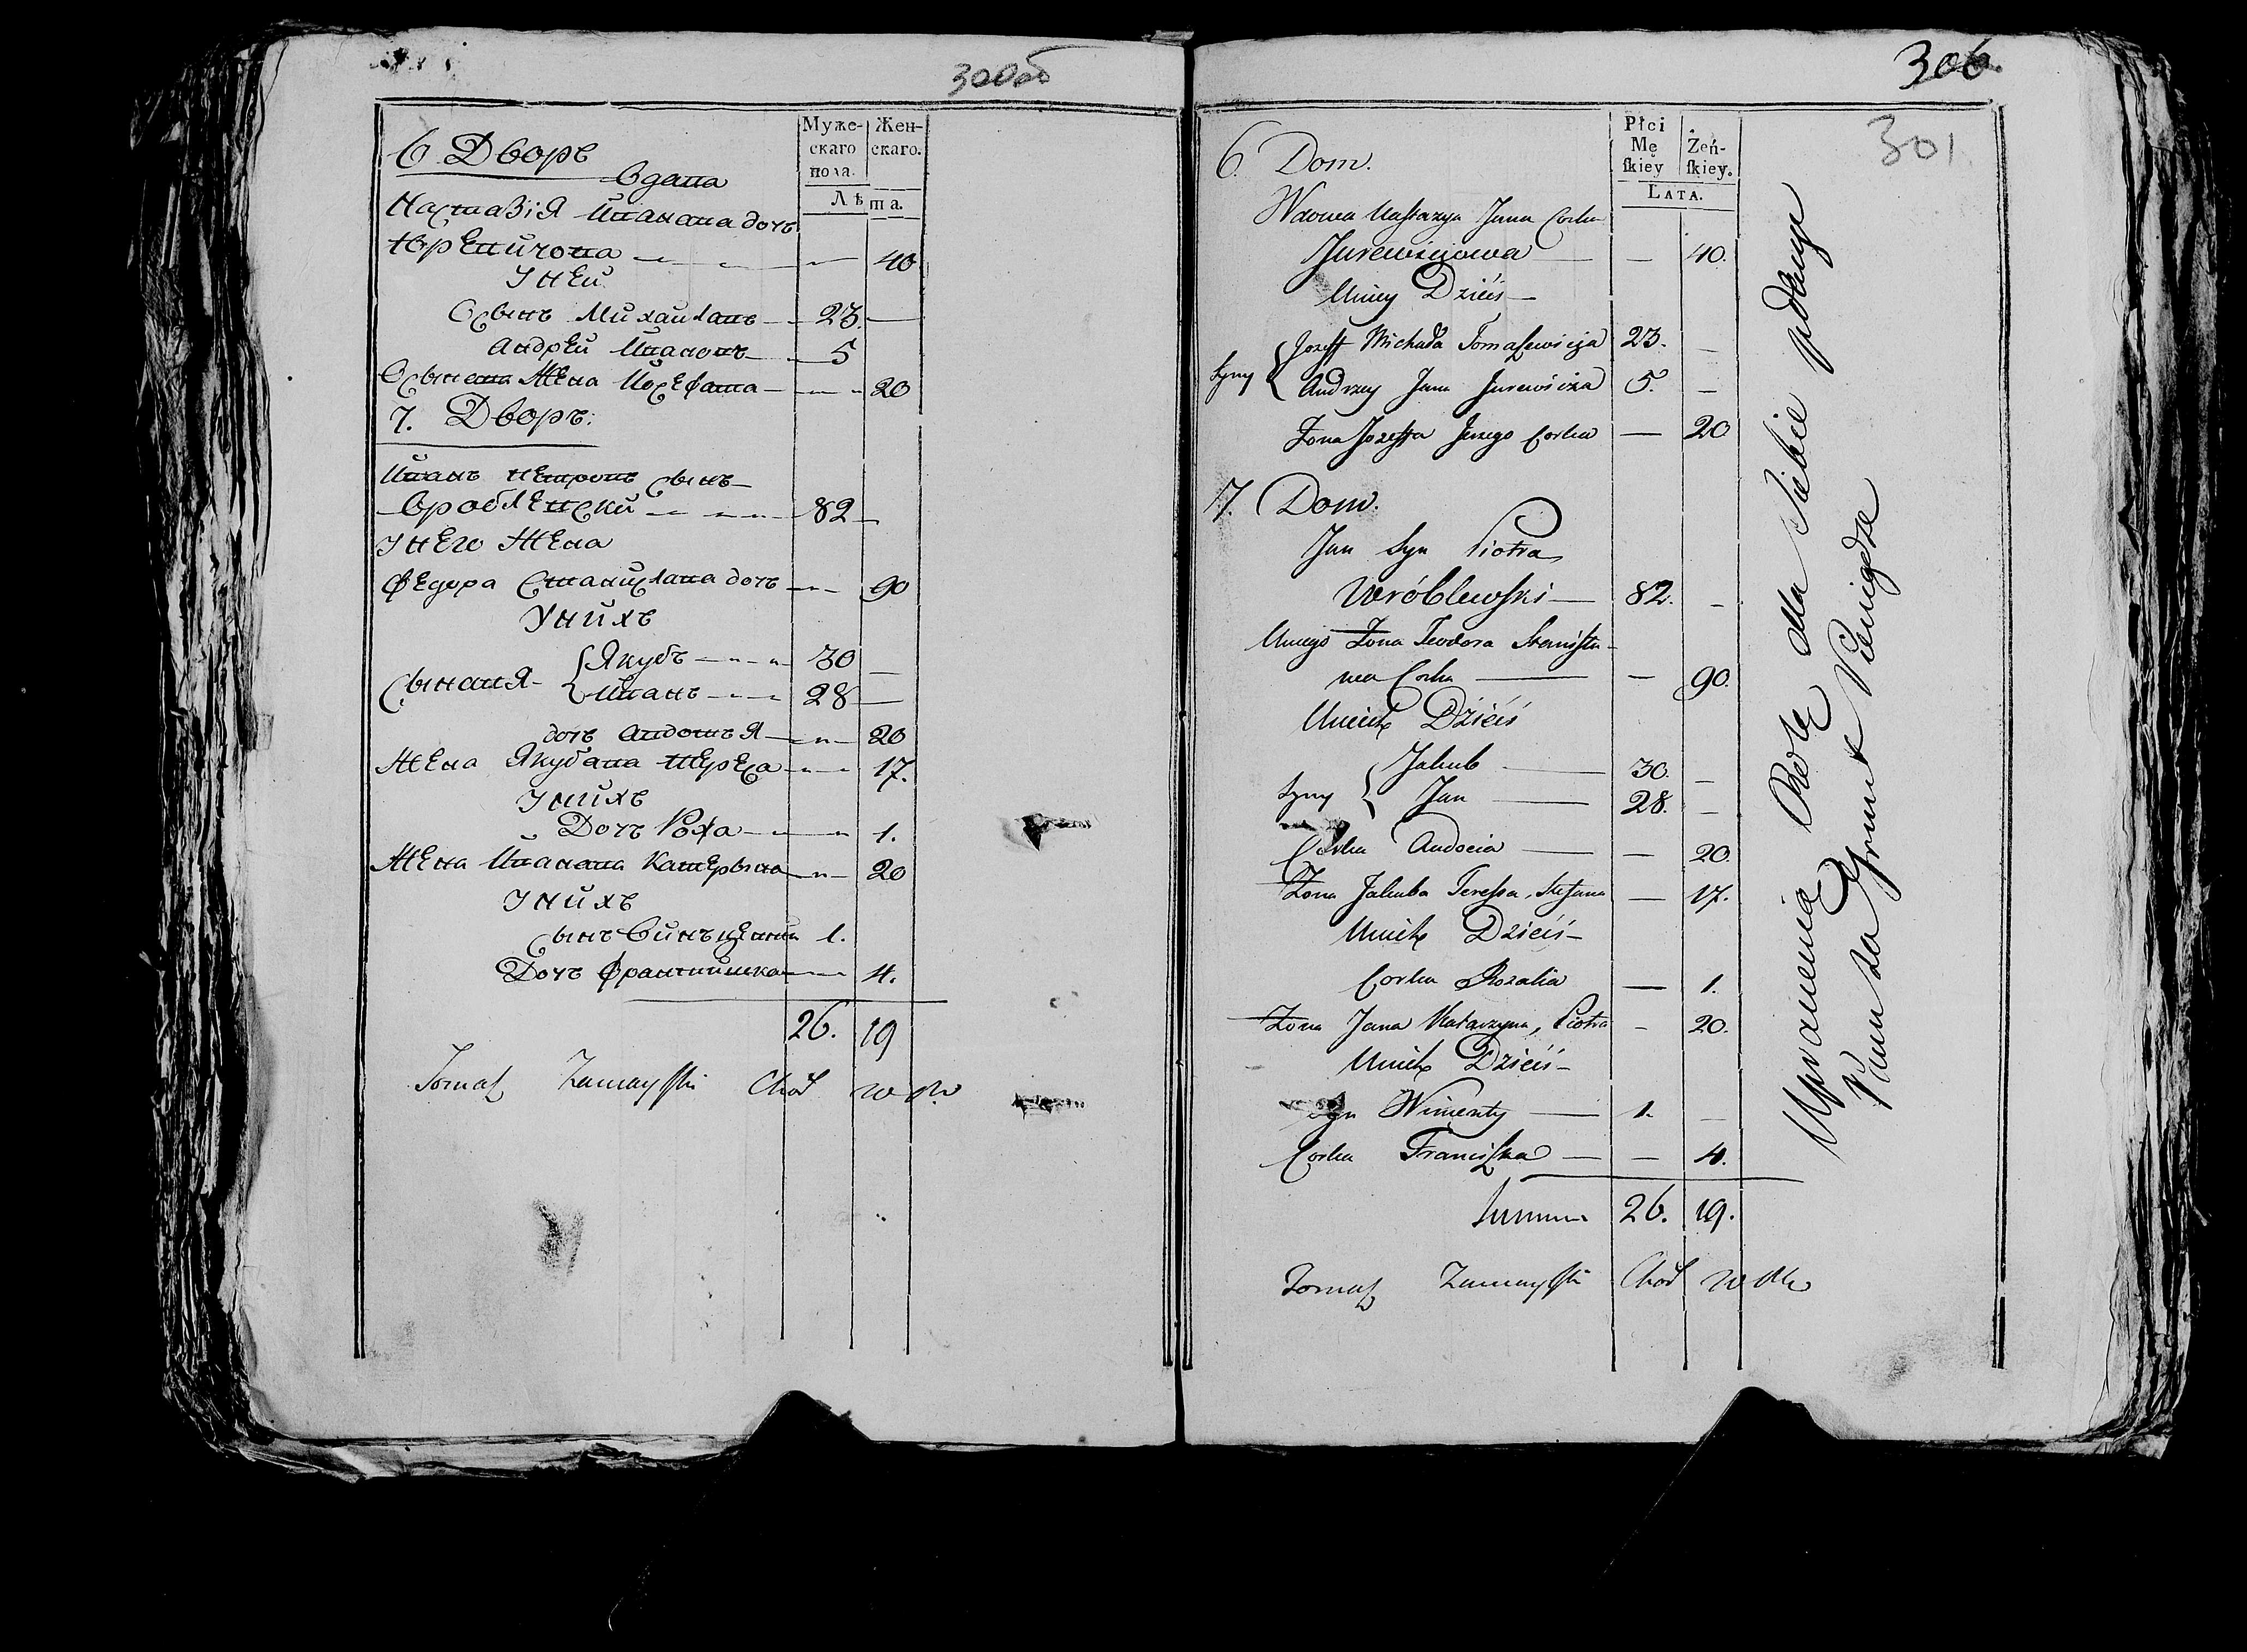 300об
Муже-
скаго
пола.
Жен-
скаго.
Лѣта.
6 Дворъ
Вдава
Настазія Иванава дочъ
Юревичова — 40
У неи
Осыпъ Михаилавъ — 23. —
Андреи Ивановъ — 5
Осыпава Жена Иосефата — 20
7. Дворъ:
Иванъ Петровъ сынъ
Вроблевски — 82 —
У него Жена
Федора Станислава дочъ — 90
У нихъ
Сынавя { Якубъ — 30 —
Иванъ — 28 —
дочъ Авдотъя — 20
Жена Якубава Тереса — 17.
У нихъ
Дочъ — 1.
Жена Иванава Катерына — 20
У нихъ
Сынъ 1.
Дочъ Францишка — 4.
26. 19
Tomasz Zamayski Chor w
306.
301
Płci
Mę
skiey
Żeń-
skiey.
LATA.
6. Dom.
Wdowa Nastazya Jana Corka
Jurewiczowa — — 40.
U niey Dzieci —
Syny { Jozeff Michała Tomaszewicza 23. —
Andrzey Jana Jurewicza 5. —
Żona Jozeffa Jerzego Corka — 20
7. Dom.
Jan Syn Piotra
Wróblewski — 82. —
U niego Żona Teodora Stanisła-
wa Corka — — 90.
U nich Dzieci
Syny { Jakub — 30. —
Jan — 28. —
Corka Audocia — — 20.
Żona Jakuba Teressa, Stefana — 17.
U nich Dzieci —
Corka Rozalia — 1.
Żona Jana Katarzyna, Piotra — 20.
U nich Dzieci —
Syn Wincenty — 1. —
Corka Franciszka — — 4.
Summa 26. 19.
Tomasz Zamayski Chor w
Uprawienia Rolę dla siebie płacący
Panu za Grunt Pieniądze